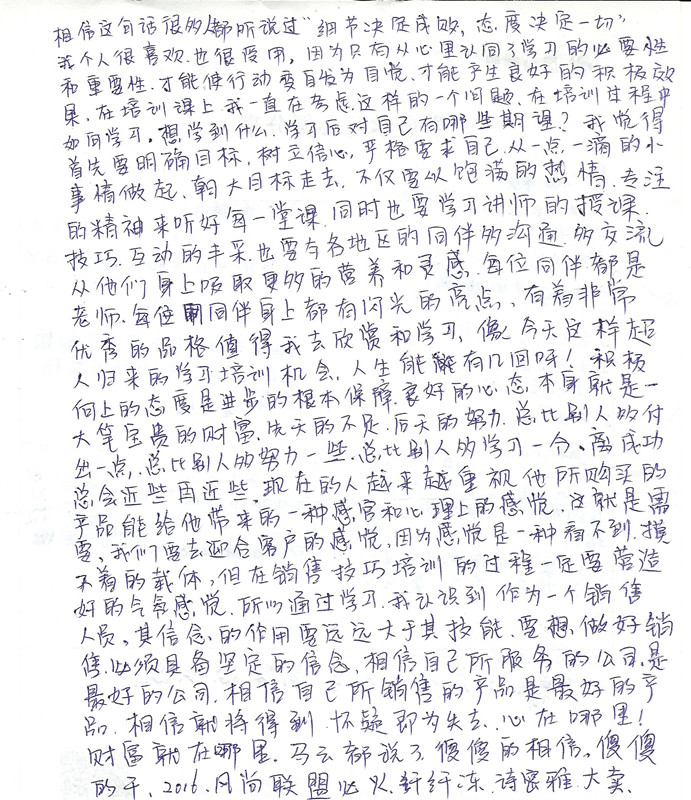 相信这句话很多人都听说过“细节决定成败，态度决定一切”
我个人很喜欢也很受用，因为只有从心里认同了学习的必要性
和重要性.才能使行动变自发为自觉.才能产生良好的积极效
果.在培训课上我一直在考虑这样的一个问题.在培训过程中
如何学习.想学到什么.学习后对自己有哪些期望？我觉得
首先要明确目标，树立信心，严格要求自己.从一点一滴的小
事情做起.朝大目标走去.不仅要以饱满的热情.专注
的精神来听好每一堂课.同时也要学习讲师的授课.
技巧.互动的丰采.也要与各地区的同伴多沟通多交流
从他们身上吸取更多的营养和灵感.每位同伴都是
老师.每位同伴身上都有闪光的亮点、有着非常
优秀的品格值得我去欣赏和学习.像今天这样超
人归来的学习培训机会.人生能有几回呀！积极
向上的态度是进步的根本保障.良好的心态.本身就是一
大笔宝贵的财富.先天的不足.后天的努力.总比别人多付
出一点.总比别人多努力一些.总比别人多学习一会.离成功
总会近些再近些.现在的人越来越重视他所购买的
产品能给他带来的一种感官和心理上的感觉.这就是需
要.我们要去迎合客户的感觉.因为感觉是一种看不到.摸
不着的载体，但在销售技巧培训的过程一定要营造
好的气氛感觉.所以通过学习.我认识到作为一个销售
人员，其信念的作用要远远大于其技能.要想做好销
售.必须具备坚定的信念.相信自己所服务的公司.是
最好的公司.相信自己所销售的产品是最好的产
品.相信就将得到.怀疑即为失去.心在哪里！
财富就在哪里.马云都说了.傻傻的相信.傻傻
的干.2016.风尚联盟必火.纤纤冻.诗密雅大卖.